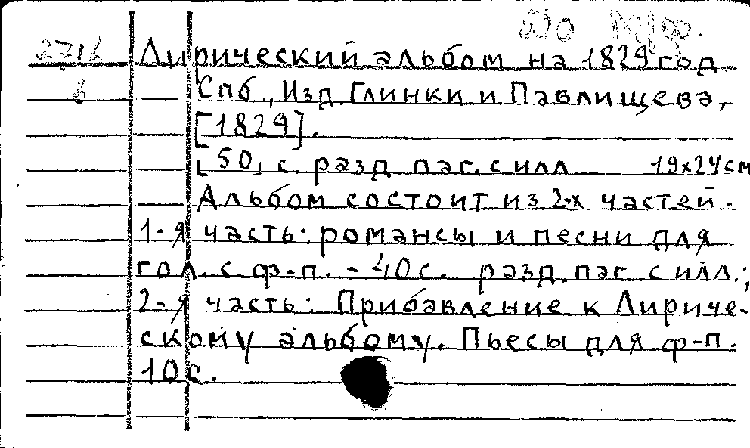 До М/ф.
2716 Лирический альбом на 1829 год
6 Спб., Изд. Глинки и Павлищева,
[1829].
[50] с. разд. паг. с илл. 19х24см
Альбом состоит из 2-х частей.
1-я часть: романсы и песни для
гол. с ф-п. - 40с. разд. паг. с илл.;
2-я часть: Прибавление к Лириче-
скому альбому. Пьесы для ф-п.
10с.